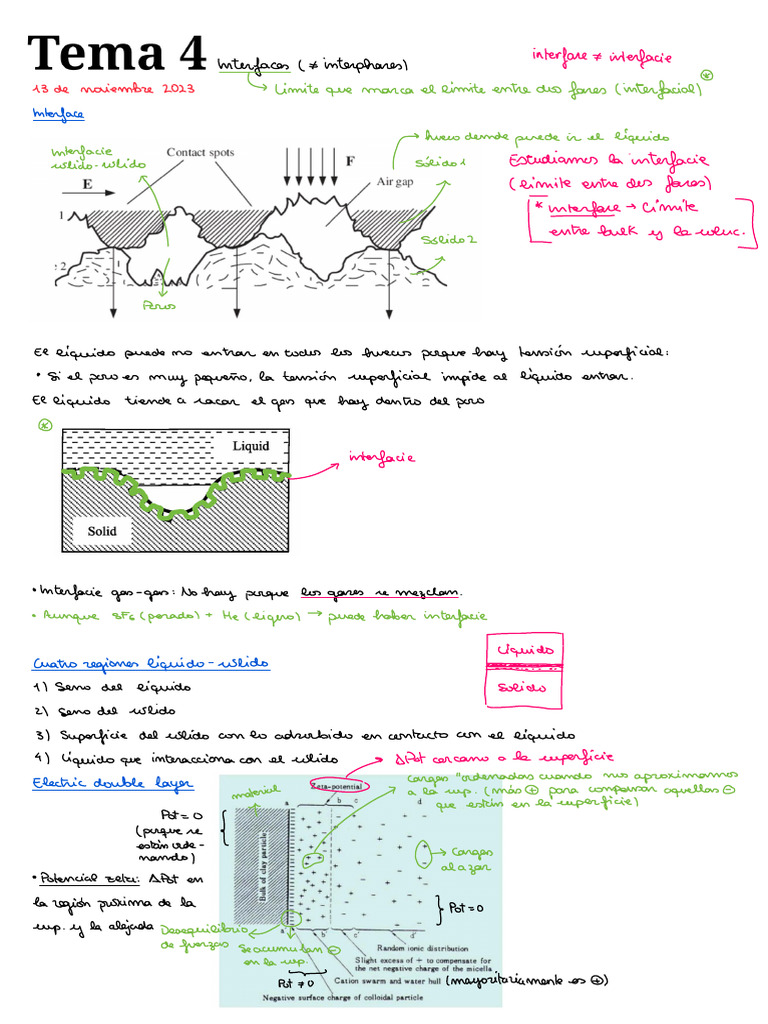 Tema 4 Interfaces (≠ interphases)
interfase ≠ interfacie
13 de noviembre 2023
Límite que marca el límite entre dos fases (interfacial) *
Interface
hueco donde puede ir el líquido
Interfacie sólido-sólido
Contact spots
F
Sólido 1
Air gap
E
1
Estudiamos la interfacie
(límite entre dos fases)
* interfase → Límite
entre bulk y la soluc.
Sólido 2
: 2
Poros
El líquido puede no entrar en todos los huecos porque hay tensión superficial:
• Si el poro es muy pequeño, la tensión superficial impide al líquido entrar.
El líquido tiende a sacar el gas que hay dentro del poro
*
Liquid
interfacie
Solid
• Interfacie gas-gas: No hay porque los gases se mezclan.
• Aunque SF6 (pesado) + He (ligero) → puede haber interfacie
Líquido
Sólido
Cuatro regiones líquido-sólido
1) Seno del líquido
2) Seno del sólido
3) Superficie del sólido con lo adsorbido en contacto con el líquido
4) Líquido que interacciona con el sólido
ΔPot cercano a la superficie
Electric double layer
material
Zeta-potential
Cargas "ordenadas cuando nos aproximamos
a la sup. (más ⊕ para compensar aquellas ⊖
que están en la superficie)
a b c d
Pot = 0
(porque se
están orde-
nando)
Bulk of clay particle
Cargas
al azar
• Potencial zeta: ΔPot en
la región próxima de la
sup. y la alejada
Pot = 0
Desequilibrio
de fuerzas
a' b' c' d'
Se acumulan ⊖
en la sup.
Random ionic distribution
Slight excess of + to compensate for
the net negative charge of the micella
Pot ≠ 0
Cation swarm and water hull (mayoritariamente es ⊕)
Negative surface charge of colloidal particle